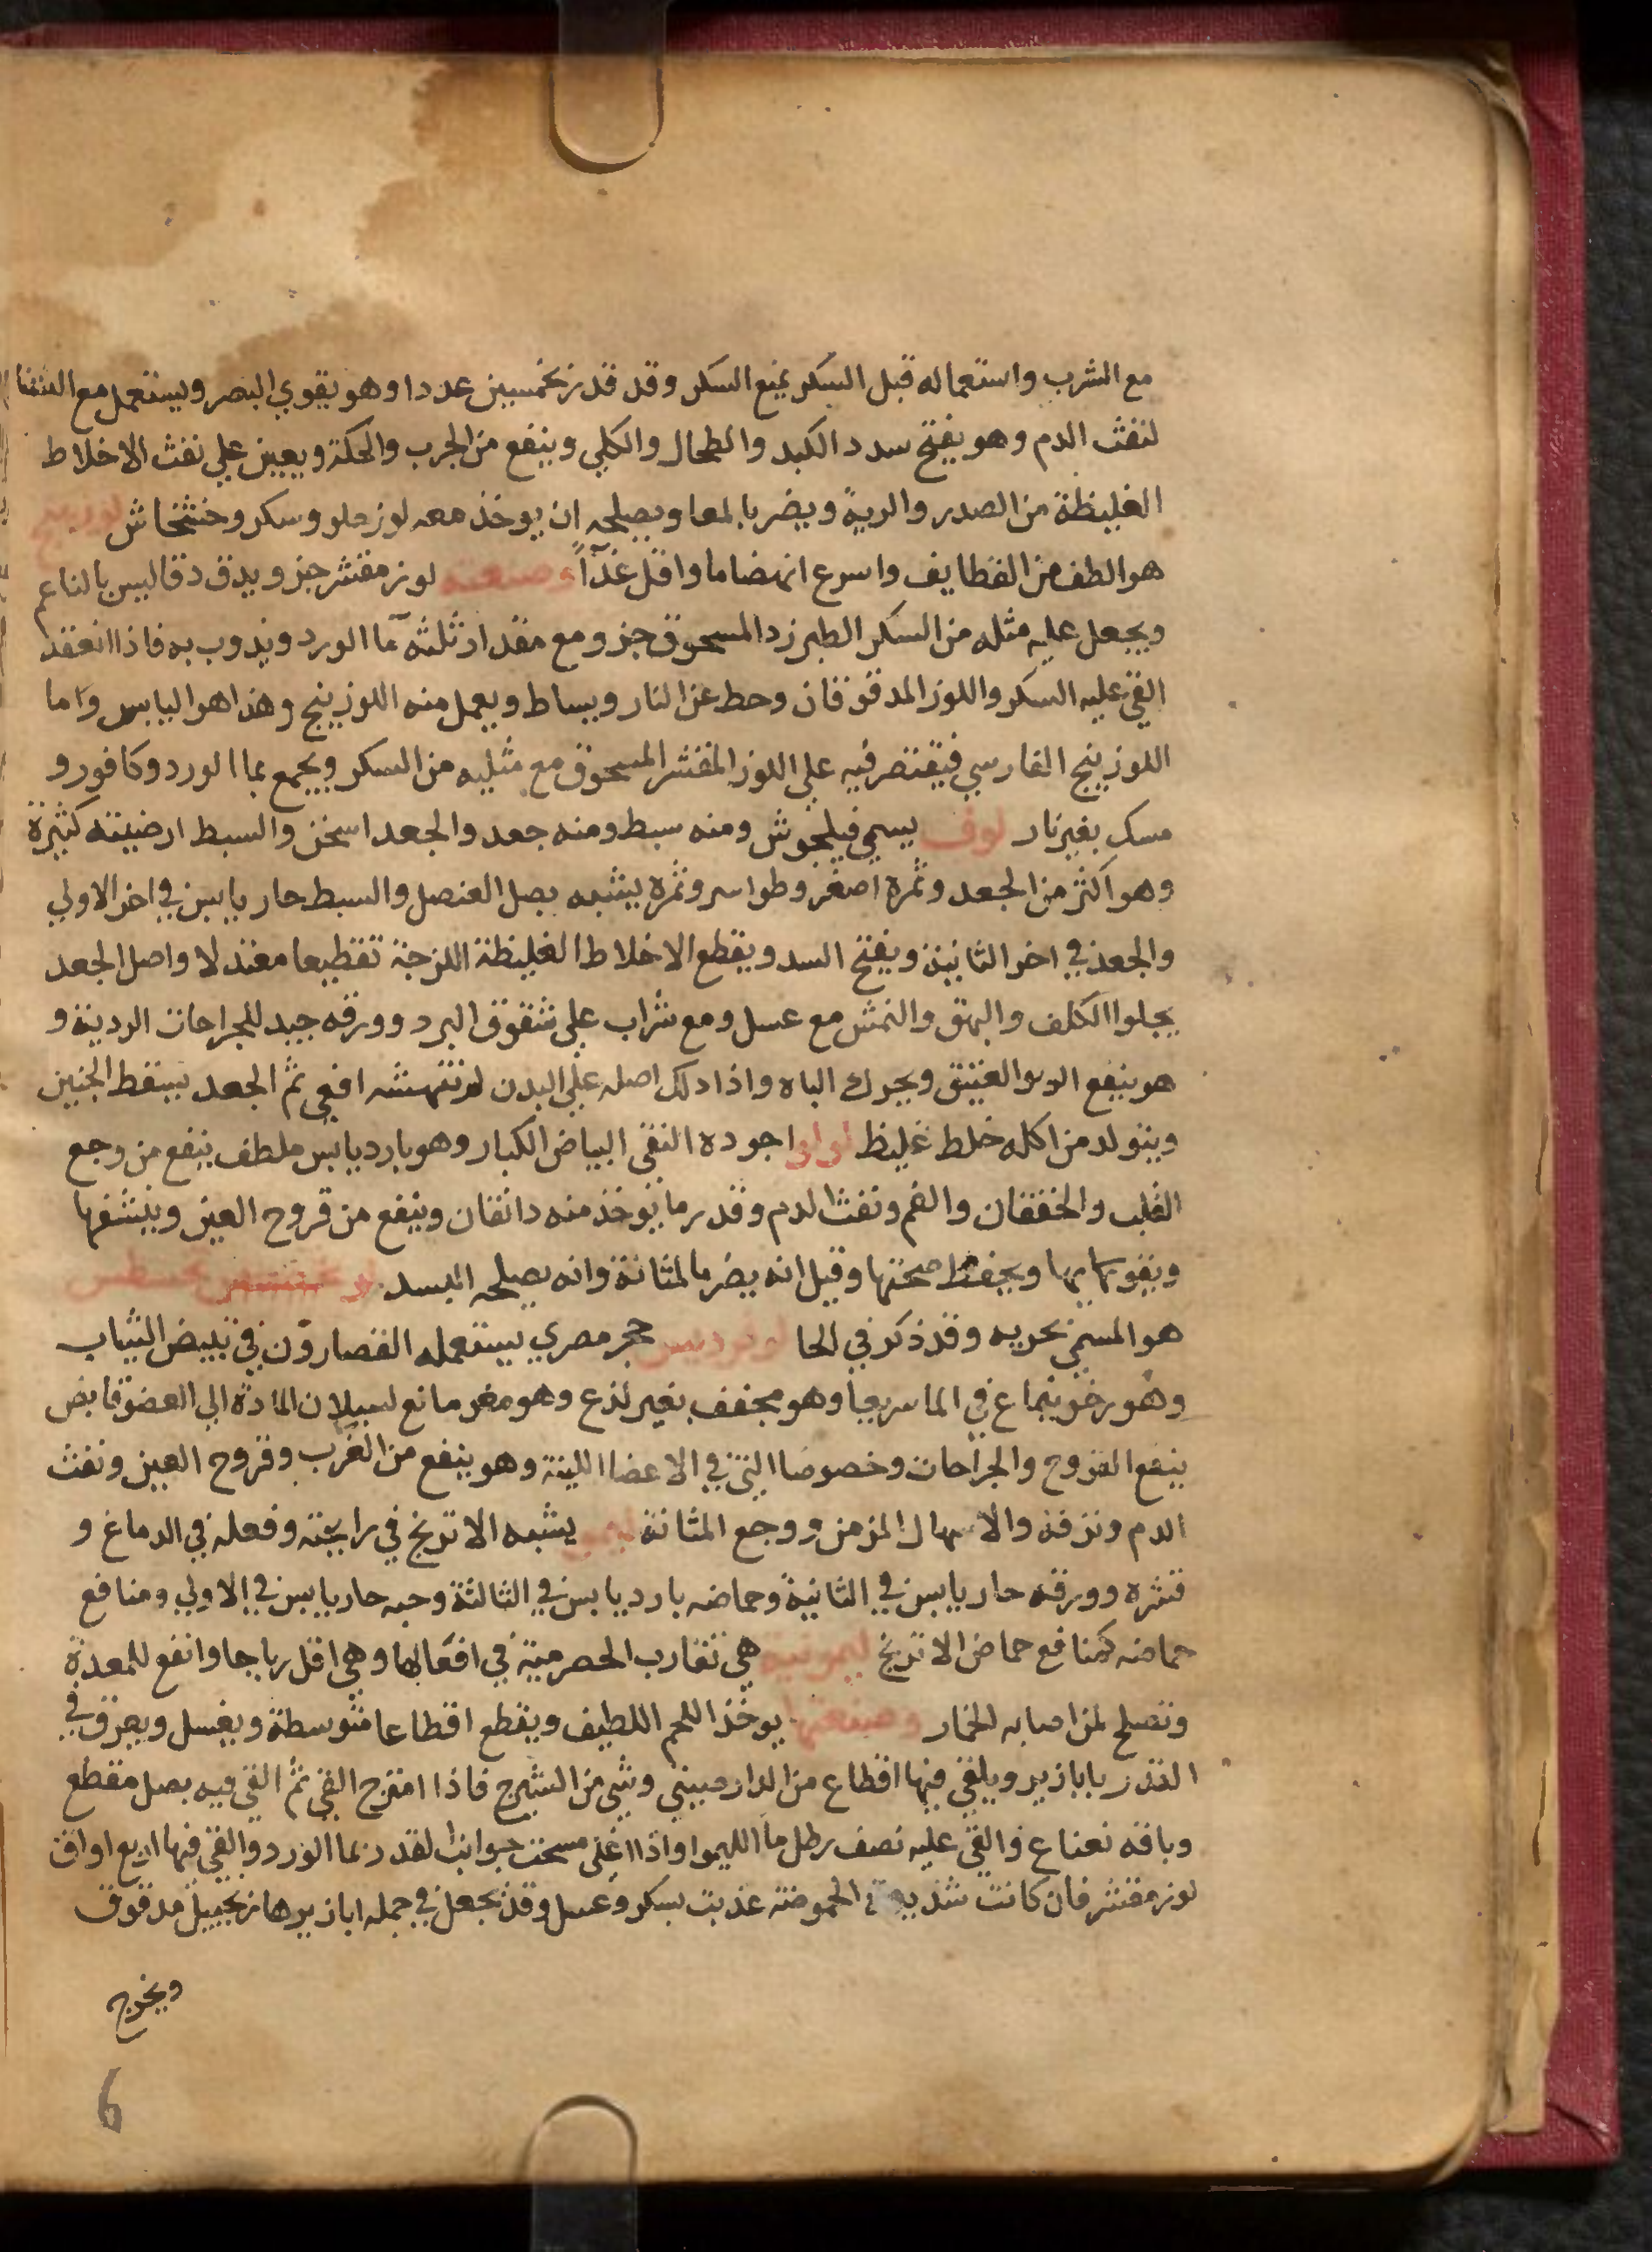 مع الشرب واستعماله قبل السكر يمنع السكر وقد قدر بخمسين عددا وهو يقوي البصر ويستعمل مع النشا
لنفث الدم وهو يفتح سدد الكبد والطحال والكلي وينفع من الجرب والحكة ويعين علي نفث الاخلاط
الغليظة من الصدر والرية ويضر بالمعا ويصلحه ان يوخذ معه لوز حلو وسكر وخشخاش لوزينج
هو الطف من القطايف واسرع انهضاما واقل غذآً وصنعته لوز مقشر جز ويدق دقا ليس بالناعم
ويجعل عليه مثله من السكر الطبرزد المسحوق جز ومع مقدار ثلثه مآ الورد ويذوب به فاذا انعقد
القي عليه السكر واللوز المدقوقان وحط عن النار ويساط ويعمل منه اللوزينج وهذا هو اليابس واما
اللوزينج الفارسي فيقتصر فيه علي اللوز المقشر المسحوق مع مثليه من السكر ويجمع بما الورد وكافور و
مسك بغير نار لوف يسمي فيلجوش ومنه سبط ومنه جعد والجعد اسخن والسبط ارضيته كثيرة
وهو اكثر من الجعد وثمرة اصغر وثمره يشبه بصل العنصل والسبط حار يابس في اخر الاولي
والجعد في اخر الثانية ويفتح السدد ويقطع الاخلاط الغليظة اللزجة تقطيعا معتدلا واصل الجعد
يجلوا الكلف والبهق والنمش مع عسل ومع شراب علي شقوق البرد وورقه جيد للجراحات الردية و
هو ينفع الربو العتيق ويحرك الباه واذا دلك اصله علي البدن لم تنهشه افعي ثم الجعد يسقط الجنين
ويتولد من اكله خلط غليظ لولو اجوده النقي البياض الكبار وهو بارد يابس ملطف ينفع من وجع
القلب والخفقان والغم ونفث الدم وقدر ما يوخذ منه دانقان وينفع من قروح العين وينشفها
ويقويها ويحفظ صحتها وقيل انه يضر بالمثانة وانه يصلحه البسد
هو المسمي بحربه وقد ذكر في الحا حجر مصري يستعمله القصارون في تبييض الثياب
وهو رخو ينماع في الما سريعا وهو مجفف بغير لذع وهو مغر مانع لسيلان المادة الي العضو قابض
ينفع القروح والجراحات وخصوصا التي في الاعضا اللينة وهو ينفع من الغرب وقروح العين ونفث
الدم ونزفه والاسهال المزمن ووجع المثانة ليمو يشبه الاترنج في رايحته وفعله في الدماغ و
قشره وورقه حار يابس في الثانية وحماضه بارد يابس في الثالثة وحبه حار يابس في الاولي ومنافع
حماضه كمنافع حماض الاترنج ليمونية هي تقارب الحصرمية في افعالها وهي اقل رياحا وانفع للمعدة
وتصلح لمن اصابه الخمار وصنعتها يوخذ اللحم اللطيف ويقطع اقطاعا متوسطة ويغسل ويعرق في
القدر بابازير ويلقي فيها اقطاع من الدارصيني وشي من الشيرج فاذا امتزج القي ثم القي فيه بصل مقطع
وباقه نعناع والقي عليه نصف رطل ما الليموا واذا اغلي مسحت جوانب القدر بما الورد والقي فيها اربع اواق
لوز مقشر فان كانت شديدة الحموضة عذبت بسكر وعسل وقد يجعل في جمله ابازيرها زنجبيل مدقوق
ويخرج
6